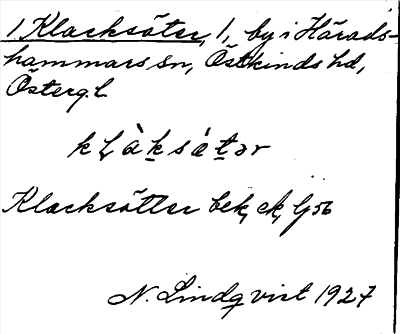 1 Klacksäter, 1, by i Härads-
hammars sn, Östkinds hd,
Österg.l.
k l à k s á t ə r
Klacksätter bek, ek,
N. Lindqvist 1927